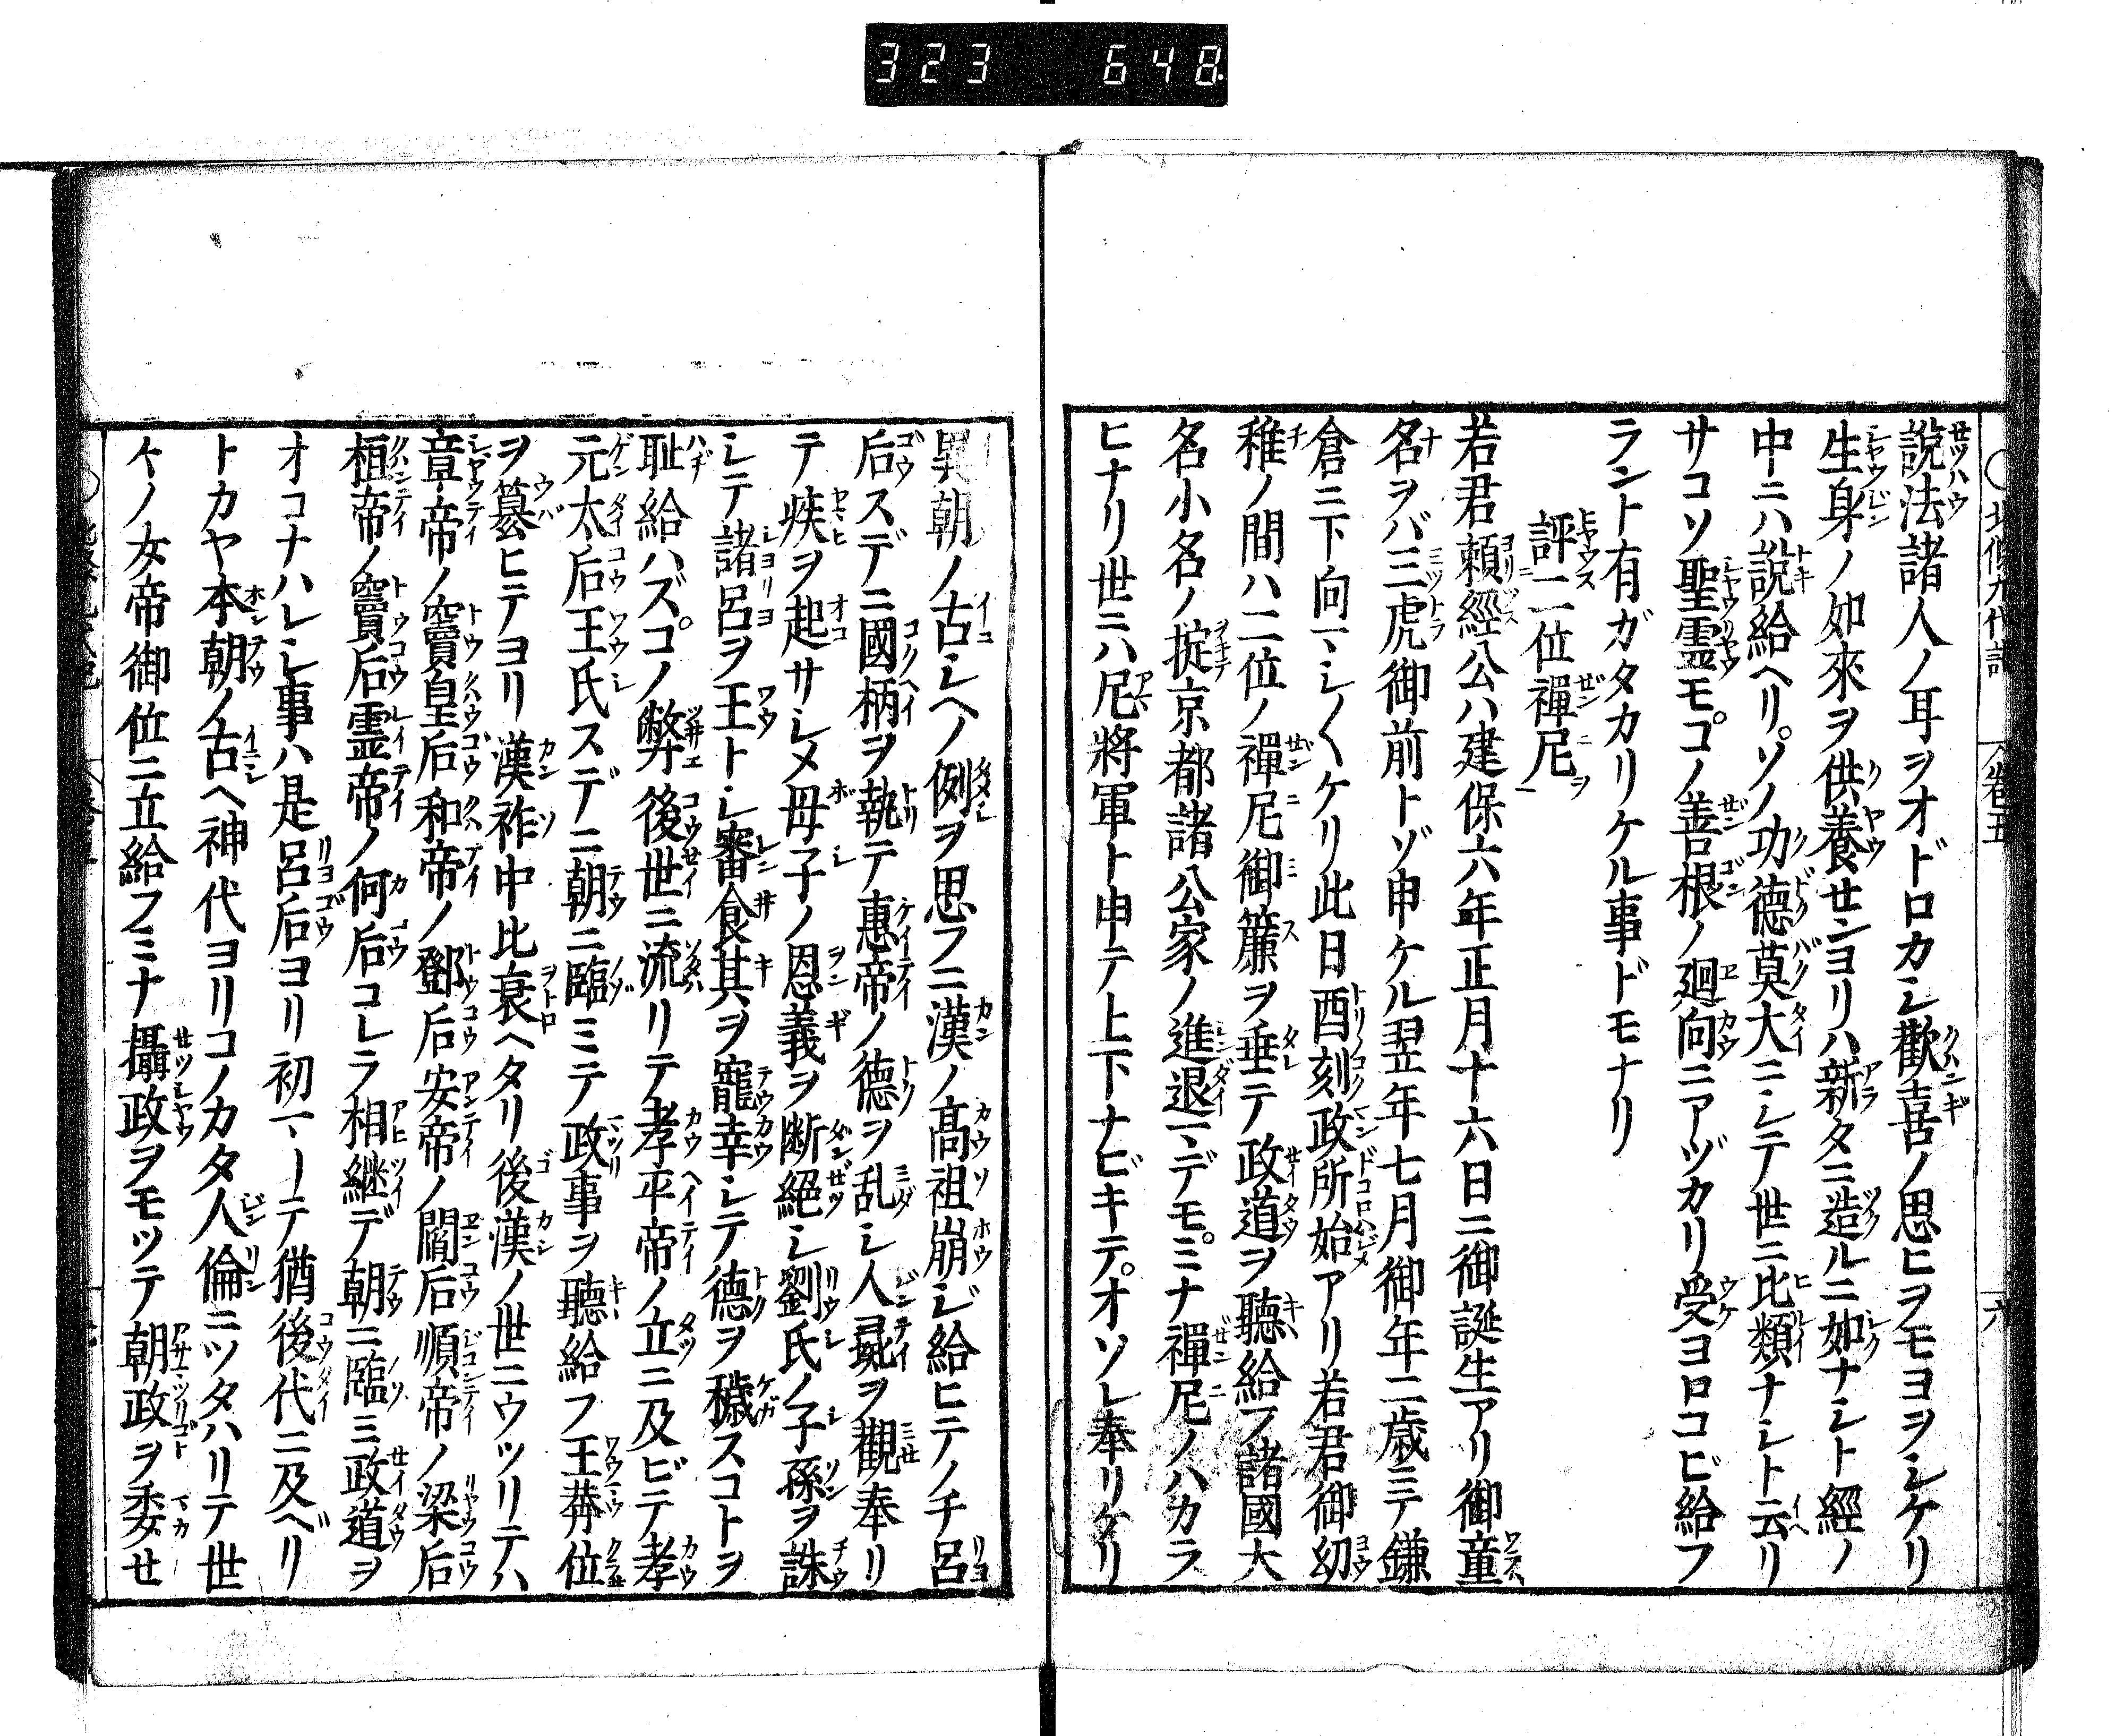 323 648
北條九代記 卷五 六
說法諸人ノ耳ヲオドロカシ歡喜ノ思ヒヲモヨヲシケリ
生身ノ如來ヲ供養センヨリハ新タニ造ルニ如ナシト經ノ
中ニハ說給ヘリ。ソノ功德莫大ニシテ世ニ比類ナシト云リ
サコソ聖霊モ。コノ善根ノ廻向ニアヅカリ受ヨロコビ給フ
ラント有ガタカリケル事ドモナリ
評二位禪尼
若君頼經公ハ建保六年正月十六日ニ御誕生アリ御童
名ヲバ三虎御前トゾ申ケル翌年七月御年二歳ニテ鎌
倉ニ下向マシ〱ケリ此日酉刻政所始アリ若君御幼
稚ノ間ハ二位ノ禪尼御簾ヲ垂テ政道ヲ聽給フ諸國大
名小名ノ掟京都諸公家ノ進退マデモ。ミナ禪尼ノハカラ
ヒナリ世ニハ尼將軍ト申テ上下ナビキテ。オソレ奉リケリ
異朝ノ古シヘノ例ヲ思フニ漢ノ髙祖崩ジ給ヒテノチ呂
后スデニ國柄ヲ執テ惠帝ノ德ヲ乱シ人彘ヲ觀奉リ
テ疾ヲ起サシメ母子ノ恩義ヲ断絕シ劉氏ノ子孫ヲ誅
シテ諸呂ヲ王トシ審食其ヲ寵幸シテ德ヲ穢スコトヲ
耻給ハズ。コノ弊後世ニ流リテ孝平帝ノ立ニ及ビテ孝
元太后王氏スデニ朝ニ臨ミテ政事ヲ聽給フ王莽位
ヲ簒ヒテヨリ漢祚中比衰ヘタリ後漢ノ世ニウツリテハ
章帝ノ竇皇后和帝ノ鄧后安帝ノ閻后順帝ノ梁后
桓帝ノ竇后霊帝ノ何后コレラ相継デ朝ニ臨ミ政道ヲ
オコナハレシ事ハ是呂后ヨリ初マリテ猶後代ニ及ベリ
トカヤ本朝ノ古ヘ神代ヨリコノカタ人倫ニツタハリテ世
々ノ女帝御位ニ立給フミナ攝政ヲモツテ朝政ヲ委せ